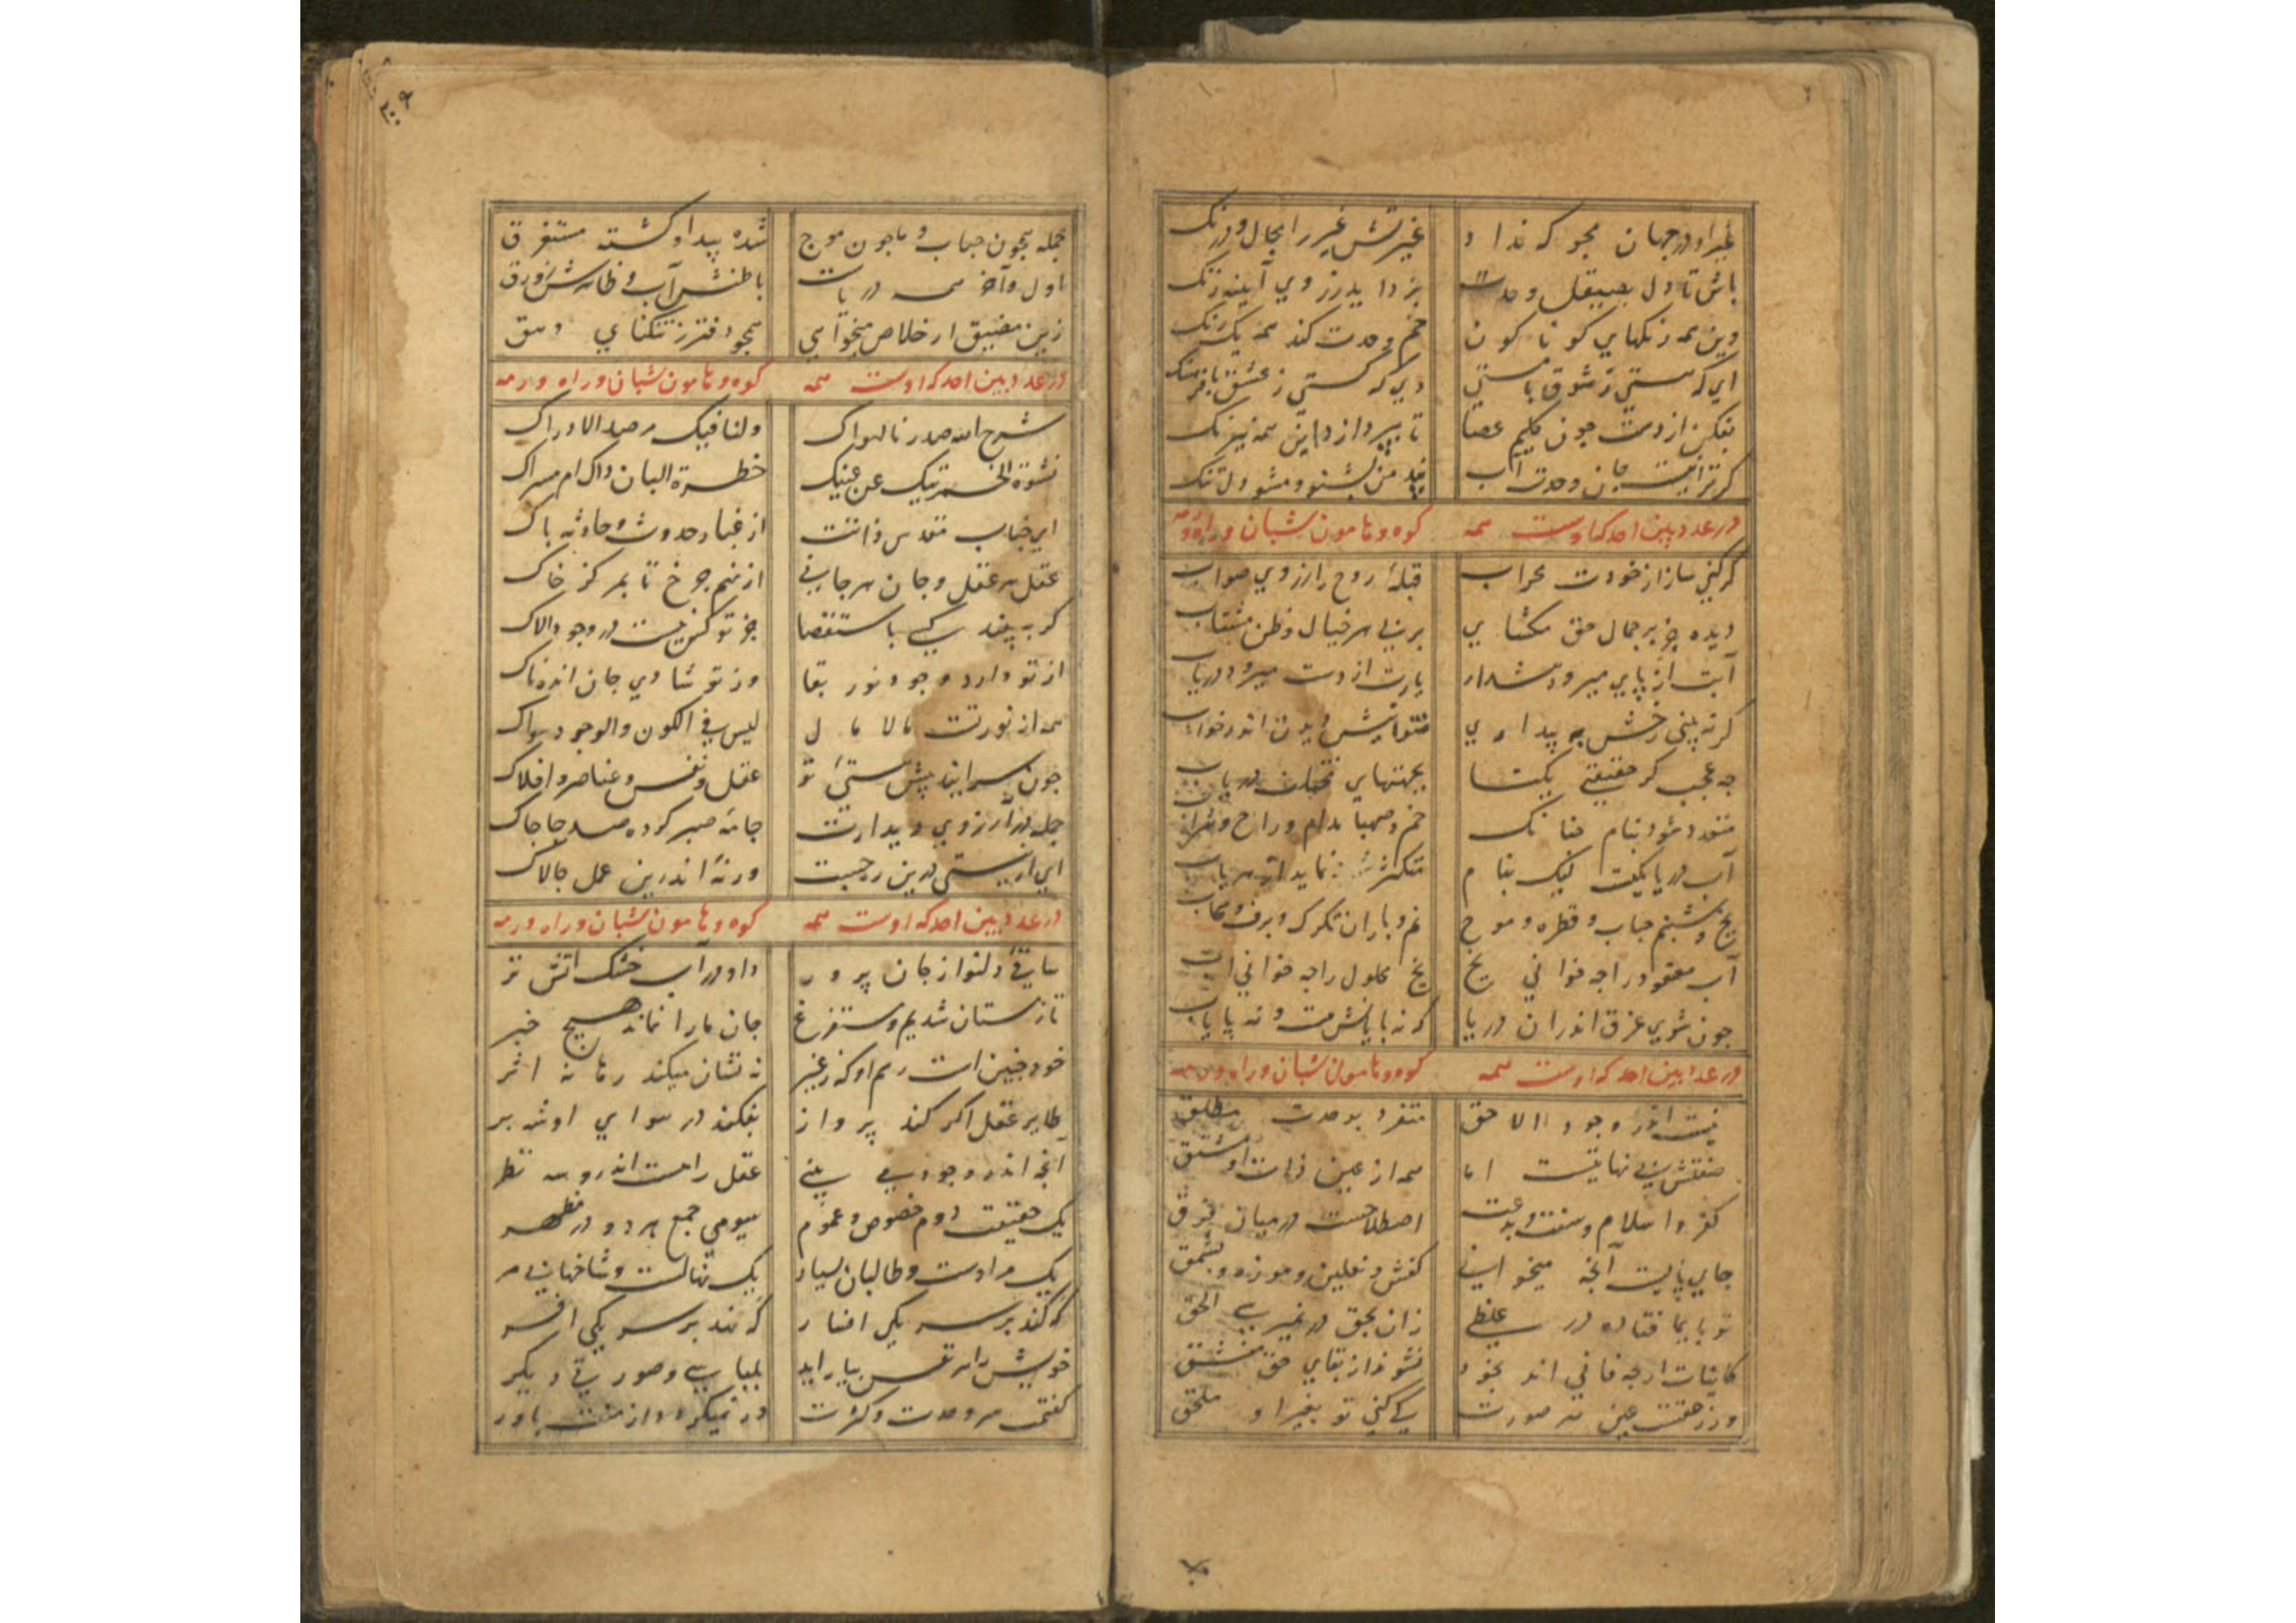 غیر او در جهان مجو که ندا د غیرتش غیر را مجال و درنک
باش تا دل بصیقل وحدت بزداید ز روی آینه زنک
وین همه رنکهای کوناکون خم وحدت کند همه یک رنک
ای که هستی ز شوق با مستی وی که هستی ز عشق با فرهنک
بفکن از دست چون کلیم عصا تا بپردازد این همه نیرنک
کر ترا نیست جان وحدت یاب پند من بشنو و مشو دلتنک
در عدد بین احد که اوست همه کوه و هامون شبان و راه و رمه
کر کنی ساز از خودت محراب قبلهٔ روح را ز روی صواب
دیده جز بر جمال حق مکشای بر پی هر خیال و ظن مشتاب
آبت از پای میرود هشدار یارت از دست میرود دریاب
کر نه بینی رخش به پیداری نتوانیش دیدن اندر خواب
چه عجب کر حقیقتی یکتا بجهتهای مختلف دریاب
متعدد شود بنام چنانک خم و صهبا مدام و راح و شراب
آب دریا یکیست لیک بنام متکثر نماید از هر باب
یخ و شبنم حباب و قطره و موج نم و باران تکرک و برف و سحاب
آب معقود را چه خوانی یخ یخ محلول را چه خوانی آب
چون شوی غرق اندران دریا که نه پایانش هست و نه پایاب
در عدد بین احد که اوست همه کوه و هامون شبان و راه و رمه
نیست اندر وجود الا حق متفرد بوحدت مطلق
صفتش بی نهایتست اما همه از عین ذات او مشتق
کفر و اسلام و سنت و بدعت اصطلاحیست در میان فرق
جای پاییست آنچه میخوانی کفش و نعلین و موزه و بشمق
تو بایما فتاده در غلطی زان بحق در نمیرسی الحق
کاینات ارچه فانی اند بخود نشو از بقای حق منشق
ور ز حقیقت عین هر صورت کی کنی تو بغیر او ملحق
۲۰۹
جمله همچون حباب و ما چون موج شده پیدا و کشته مستغرق
اول و آخر همه دریاست باطنش آب و ظاهرش زورق
زین مضیق ار خلاص میخواهی همچو دفتر ز تنکنای وسق
در عدد بین احد که اوست همه کوه و هامون شبان و راه و رمه
شرح الله صدرنا لهواک ولنا فیک مرصد الادراک
نشوة الخمر تیک عن عینیک خطرة البان ذاک ام مسراک
ای جناب مقدس ذاتت از غبار حدوث و حادثه پاک
عقل هر عقل و جان هر جانی از نهم چرخ تا بمرکز خاک
کر به بیند کسی باستقصا جز تو کس نیست در وجود الاک
از تو دارد وجود نور بقا وز تو شادی جان اندهناک
همه از نور تست مالامال لیس فی الکون والوجود سواک
چون سرایند پیش هستی تو عقل و نفس و عناصر و افلاک
جمله در آرزوی دیدارت جامهٔ صبر کرده صد جا چاک
ای اریستی درین رجبت ور نهٔ اندرین عمل چالاک
در عدد بین احد که اوست همه کوه و هامون شبان و راه و رمه
ساقی دلنواز جان پرور داد در آب خشک آتش تر
تا ز مستان شدیم و مستفرغ جان ما را نماند هیچ خبر
خود چنین است رسم او که ز غیر نه نشان میکند رها نه اثر
طایر عقل اکر کند پرواز بفکند در هوای او شهپر
آنچه اندر وجود می بینی عقل را هست اندرو سه نظر
یک حقیقت دوم خصوص و عموم سیومی جمع هر دو در مظهر
یک مرادست و طالبان بسیار یک نهالست و شاخهای بی مر
که کند بر سر یکی افسار که نهد بر سر یکی افسر
خویش را هر نفس بیاراید بلباسی و صورتی دیکر
کفتمت سر وحدت و کثرت ور نمیکردد از منت باور